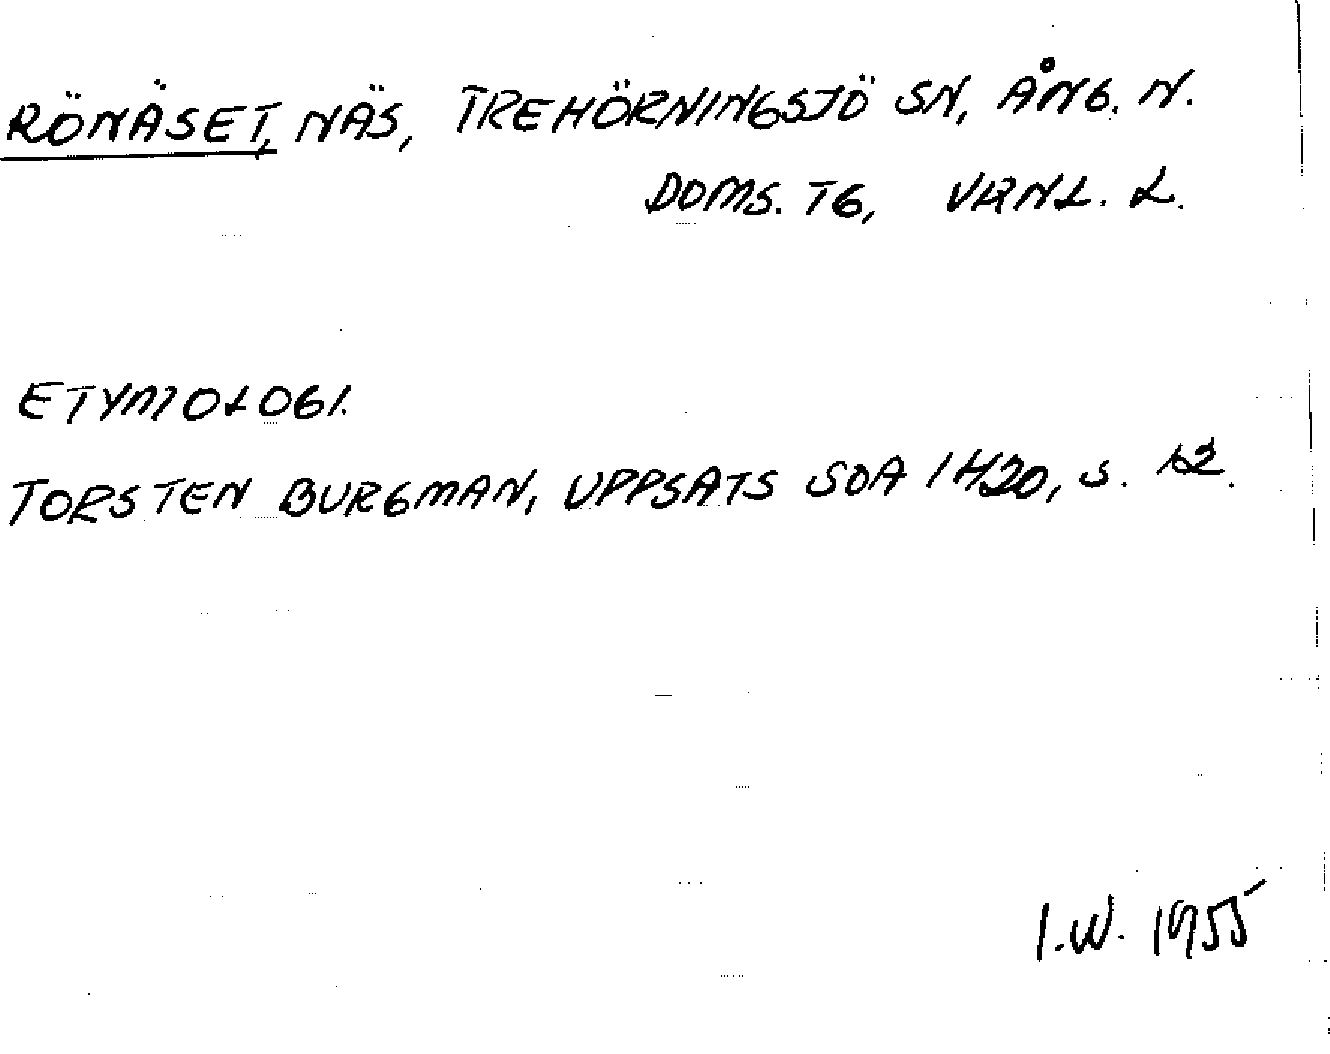 RÖNÄSET, NÄS, TREHÖRNINGSJÖ SN, ÅNG. N.
DOMS. TG, VRNL. L.
ETYMOLOGI.
TORSTEN BURGMAN, UPPSATS SOA 1420, S. 12.
I.W. 1955